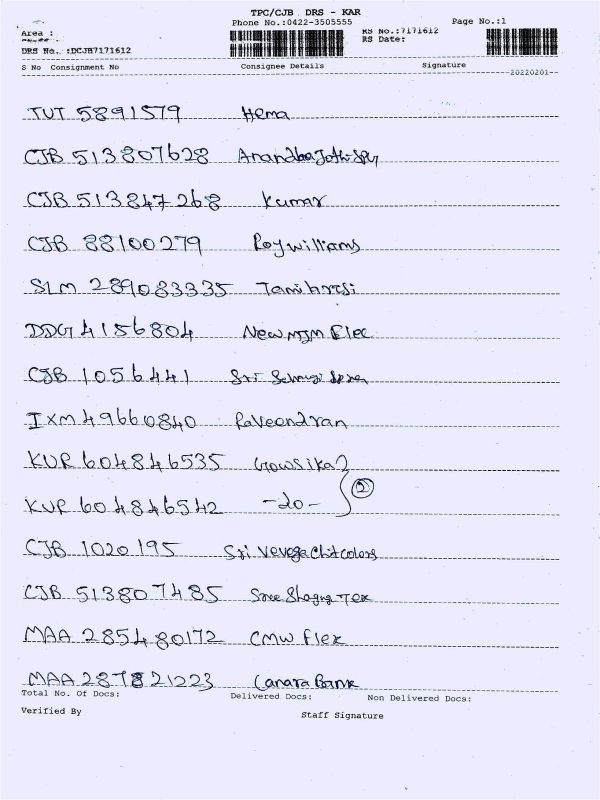 TPC/CJB DRS - KAR
Phone No.:0422-3505555 Page No.:1
Area : RS No.:7171612
DRS No. :DCJB7171612 RS Date:
S No Consignment No Consignee Details Signature
20220201
TUT 5891579 Hema
CJB 513807628 Anandha Jothi Spg
CJB 513847268 Kumar
CJB 88100279 Roy williams
SLM 289083335
DDG 4156804 New MJM Elec
CJB 1056441 Sri
IXM 49660840 Raveendran
KUR 604846535 Gowsika
KUR 604846542 -do- 2
CJB 1020195 Sri
CJB 513807485 Sree Tex
MAA 285480172 CMW Flex
MAA 287821223 Canara Bank
Total No. Of Docs: Delivered Docs: Non Delivered Docs:
Verified By Staff Signature